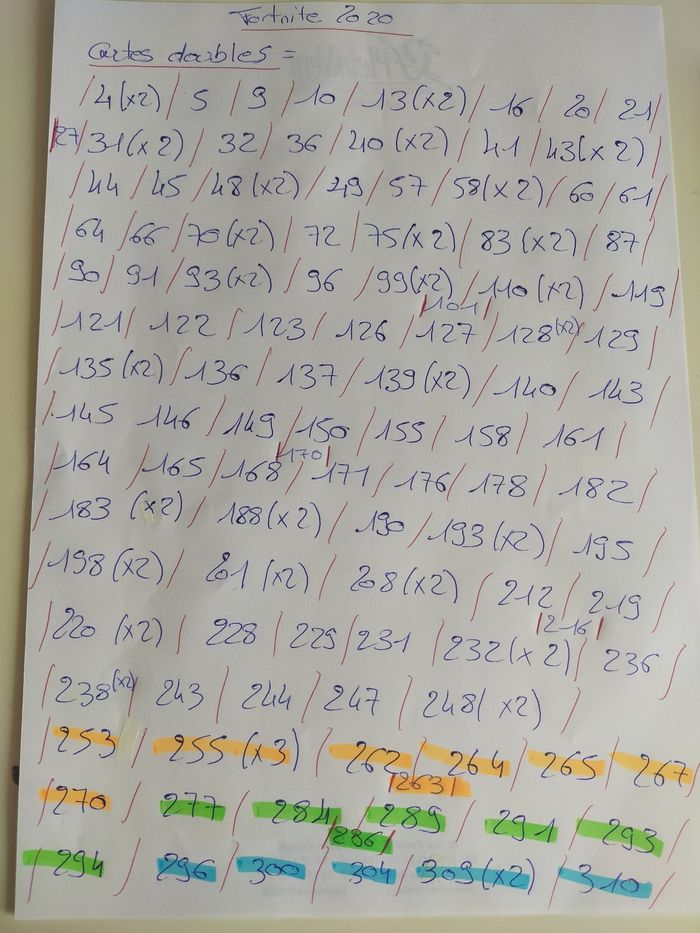 Fortnite 2020
Cartes doubles =
/ 4(x2) / 5 / 9 / 10 / 13(x2) / 16 / 20 / 21 /
/27/ 31(x2) / 32 / 36 / 40(x2) / 41 / 43(x2) /
/ 44 / 45 / 48(x2) / 49 / 57 / 58(x2) / 60 / 61 /
/ 64 / 66 / 70(x2) / 72 / 75(x2) / 83(x2) / 87 /
/ 90 / 91 / 93(x2) / 96 / 99(x2) / 110(x2) / 119 /
/101/
/ 121 / 122 / 123 / 126 / 127 / 128(x2) / 129 /
/ 135(x2) / 136 / 137 / 139(x2) / 140 / 143 /
/ 145 146 / 149 / 150 / 155 / 158 / 161 /
/170/
/ 164 / 165 / 168 / 171 / 176 / 178 / 182 /
/ 183 (x2) / 188(x2) / 190 / 193(x2) / 195 /
/ 198(x2) / 201(x2) / 208(x2) / 212 / 219 /
/216/
/ 220 (x2) / 228 / 229 / 231 / 232(x2) / 236 /
/ 238(x2) / 243 / 244 / 247 / 248(x2) /
/ 253 / 255(x3) / 262 / 264 / 265 / 267 /
/263/
/ 270 / 277 / 284 / 289 / 291 / 293 /
/286/
/ 294 / 296 / 300 / 304 / 309(x2) / 310 /